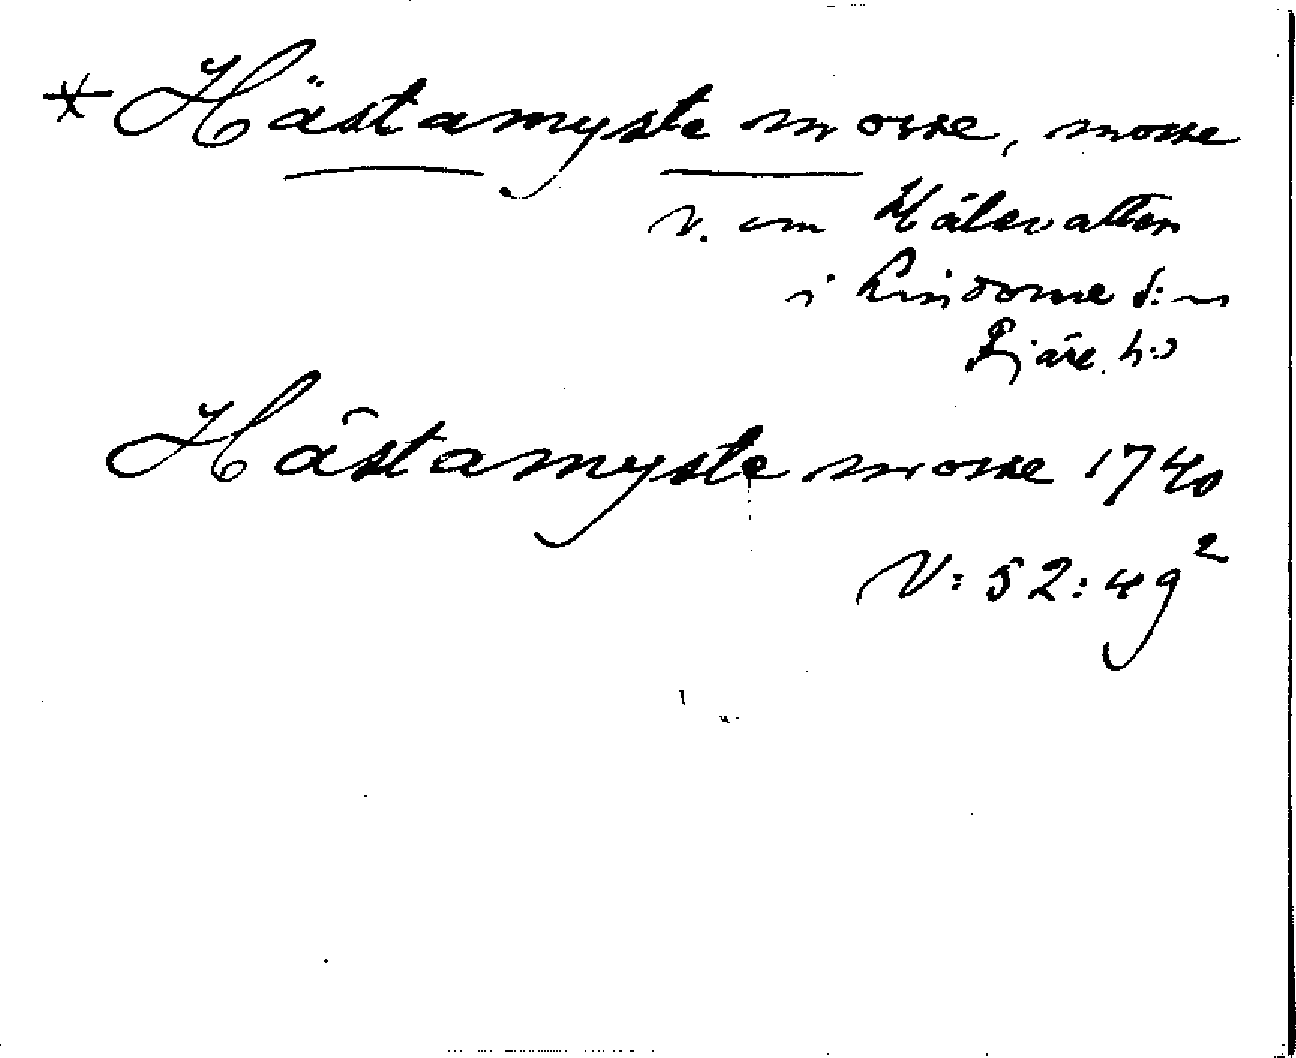 * Hästamyste mosse, mosse
V. om Hålevatten
i Lindome s:n
Fjäre h:d
Hästamyste mosse 1740
V: 52: 49²